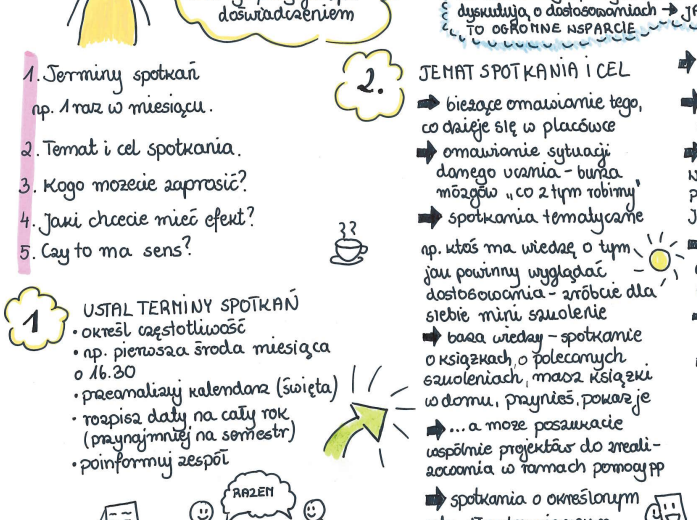 doświadczeniem
dyskutują o dostosowaniach →
TO OGROMNE WSPARCIE
1. Terminy spotkań
np. 1 raz w miesiącu.
2. Temat i cel spotkania.
3. Kogo możecie zaprosić?
4. Jaki chcecie mieć efekt?
5. Czy to ma sens?
1
USTAL TERMINY SPOTKAŃ
• określ częstotliwość
• np. pierwsza środa miesiąca
o 16.30
• przeanalizuj kalendarz (święta)
• rozpisz daty na cały rok
(przynajmniej na semestr)
• poinformuj zespół
RAZEM
2.
TEMAT SPOTKANIA i CEL
➡ bieżące omawianie tego,
co dzieje się w placówce
➡ omawianie sytuacji
danego ucznia - burza
mózgów „co z tym robimy"
➡ spotkania tematyczne
np. ktoś ma wiedzę o tym
jak powinny wyglądać
dostosowania - zróbcie dla
siebie mini szkolenie
➡ baza wiedzy - spotkanie
o książkach, o polecanych
szkoleniach, masz książki
w domu, przynieś, pokaż je
➡ ...a może poszukacie
wspólnie projektów do zreali-
zowania w ramach pomocy pp
➡ spotkania o określonym